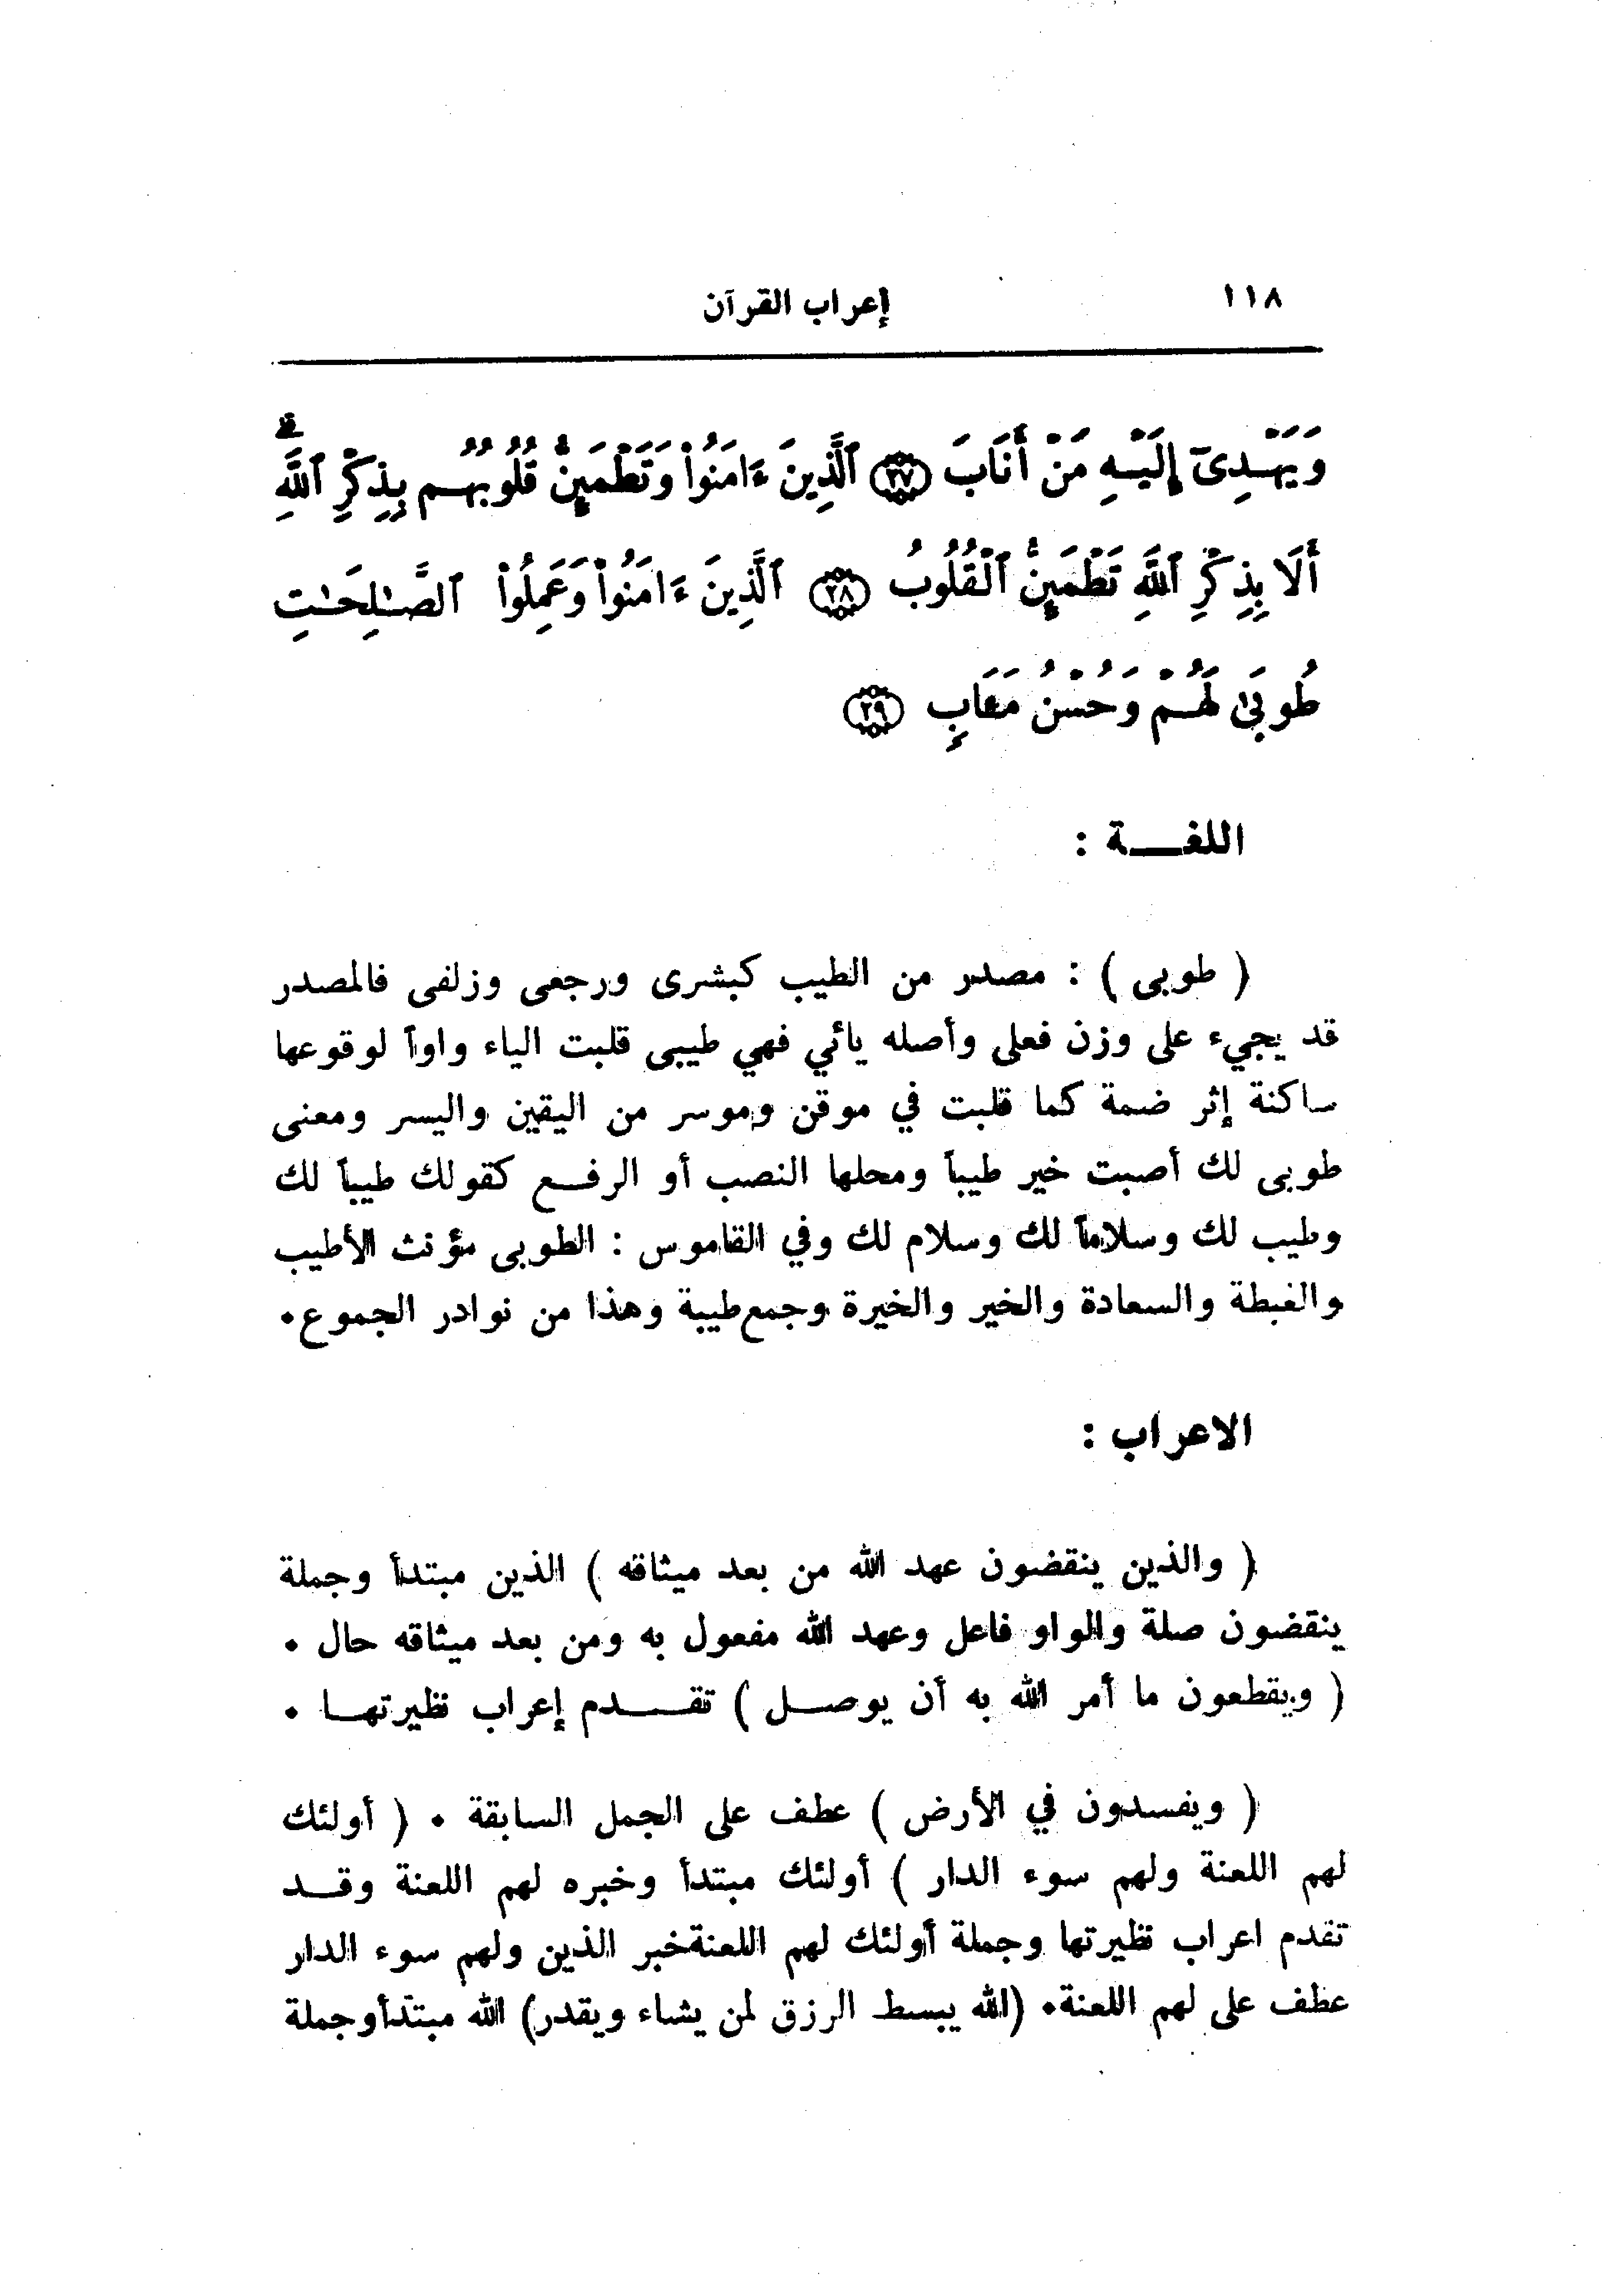 ١١٨ إعراب القرآن
وَيَهْدِىٓ إِلَيْهِ مَنْ أَنَابَ ﴿٢٧﴾ ٱلَّذِينَ ءَامَنُوا۟ وَتَطْمَئِنُّ قُلُوبُهُم بِذِكْرِ ٱللَّهِ ۗ
أَلَا بِذِكْرِ ٱللَّهِ تَطْمَئِنُّ ٱلْقُلُوبُ ﴿٢٨﴾ ٱلَّذِينَ ءَامَنُوا۟ وَعَمِلُوا۟ ٱلصَّـٰلِحَـٰتِ
طُوبَىٰ لَهُمْ وَحُسْنُ مَـَٔابٍ ﴿٢٩﴾
اللغـــة :
( طوبى ) : مصدر من الطيب كبشرى ورجعى وزلفى فالمصدر
قد يجيء على وزن فعلى وأصله يائي فهي طيبى قلبت الياء واواً لوقوعها
ساكنة إثر ضمة كما قلبت في موقن وموسر من اليقين واليسر ومعنى
طوبى لك أصبت خير طيباً ومحلها النصب أو الرفـــع كقولك طيباً لك
وطيب لك وسلاماً لك وسلام لك وفي القاموس : الطوبى مؤنث الأطيب
والغبطة والسعادة والخير والخيرة وجمع طيبة وهذا من نوادر الجموع.
الاعراب :
( والذين ينقضون عهد الله من بعد ميثاقه ) الذين مبتدأ وجملة
ينقضون صلة والواو فاعل وعهد الله مفعول به ومن بعد ميثاقه حال .
( ويقطعون ما أمر الله به أن يوصــل ) تقــــدم إعراب نظيرتهــا .
( ويفسدون في الأرض ) عطف على الجمل السابقة . ( أولئك
لهم اللعنة ولهم سوء الدار ) أولئك مبتدأ وخبره لهم اللعنة وقــد
تقدم اعراب نظيرتها وجملة أولئك لهم اللعنة خبر الذين ولهم سوء الدار
عطف على لهم اللعنة. (الله يبسط الرزق لمن يشاء ويقدر) الله مبتدأ وجملة